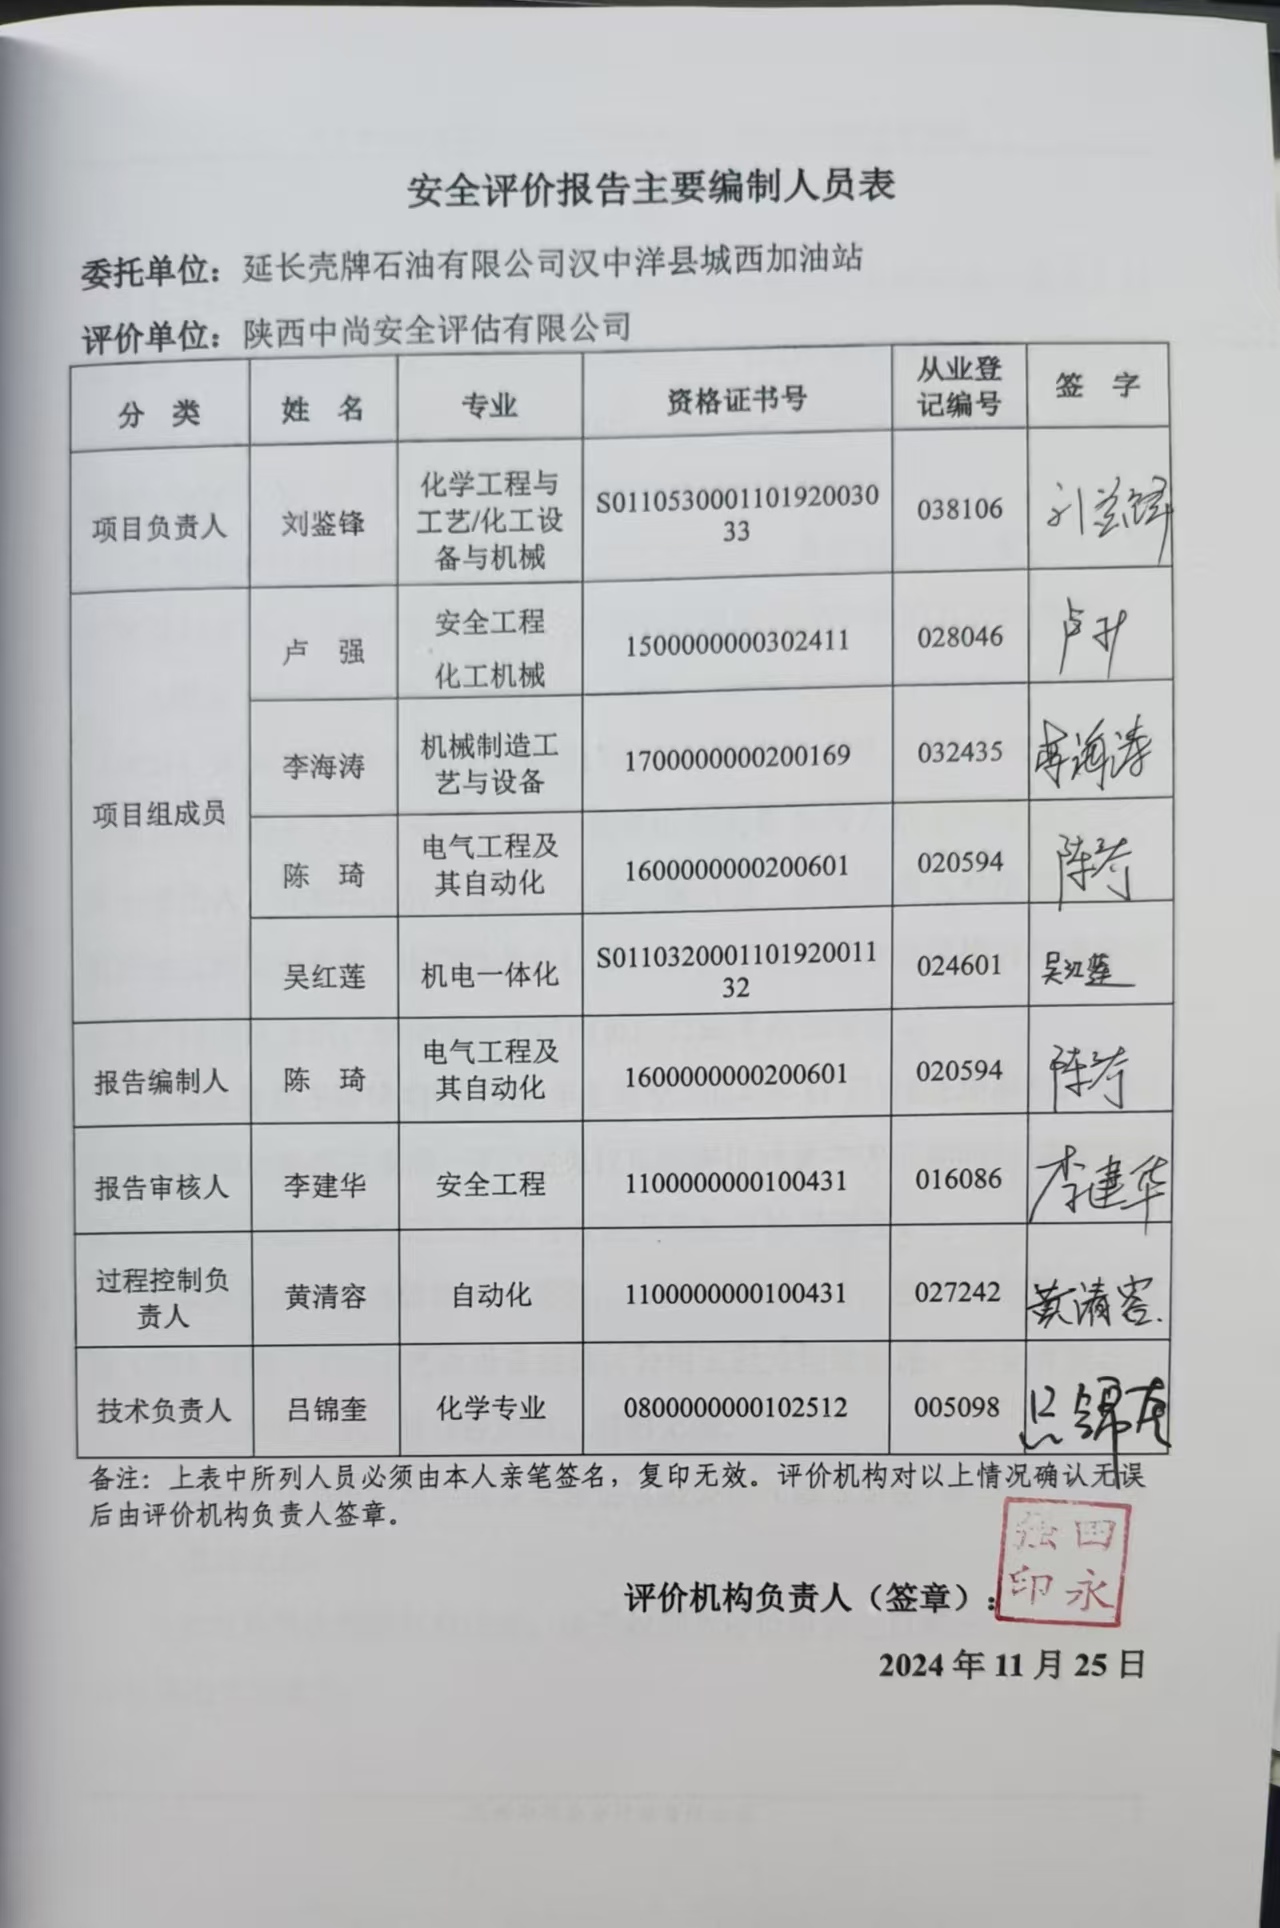 安全评价报告主要编制人员表
委托单位：延长壳牌石油有限公司汉中洋县城西加油站
评价单位：陕西中尚安全评估有限公司
分 类 姓 名 专业 资格证书号 从业登
记编号 签 字
项目负责人 刘鉴锋 化学工程与
工艺/化工设
备与机械 S0110530001101920030
33 038106 刘鉴锋
项目组成员
卢 强 安全工程
化工机械 1500000000302411 028046
李海涛 机械制造工
艺与设备 1700000000200169 032435 李海涛
陈 琦 电气工程及
其自动化 1600000000200601 020594 陈琦
吴红莲 机电一体化 S0110320001101920011
32 024601 吴红莲
报告编制人 陈 琦 电气工程及
其自动化 1600000000200601 020594 陈琦
报告审核人 李建华 安全工程 1100000000100431 016086 李建华
过程控制负
责人 黄清容 自动化 1100000000100431 027242 黄清容
技术负责人 吕锦奎 化学专业 0800000000102512 005098 吕锦奎
备注：上表中所列人员必须由本人亲笔签名，复印无效。评价机构对以上情况确认无误
后由评价机构负责人签章。
评价机构负责人（签章）：
2024 年 11 月 25 日